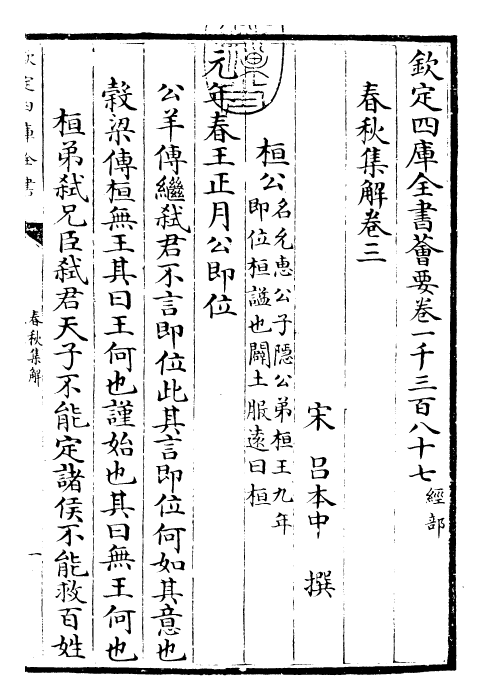 欽定四庫全書薈要卷一千三百八十七經部
春秋集解卷三
宋 呂本中 撰
桓公名允惠公子隱公弟桓王九年
即位桓諡也闢土服遠曰桓
元年春王正月公即位
公羊傳繼弑君不言即位此其言即位何如其意也
穀梁傳桓無王其曰王何也謹始也其曰無王何也
桓弟弑兄臣弑君天子不能定諸侯不能救百姓
欽定四庫全書
春秋集解
一